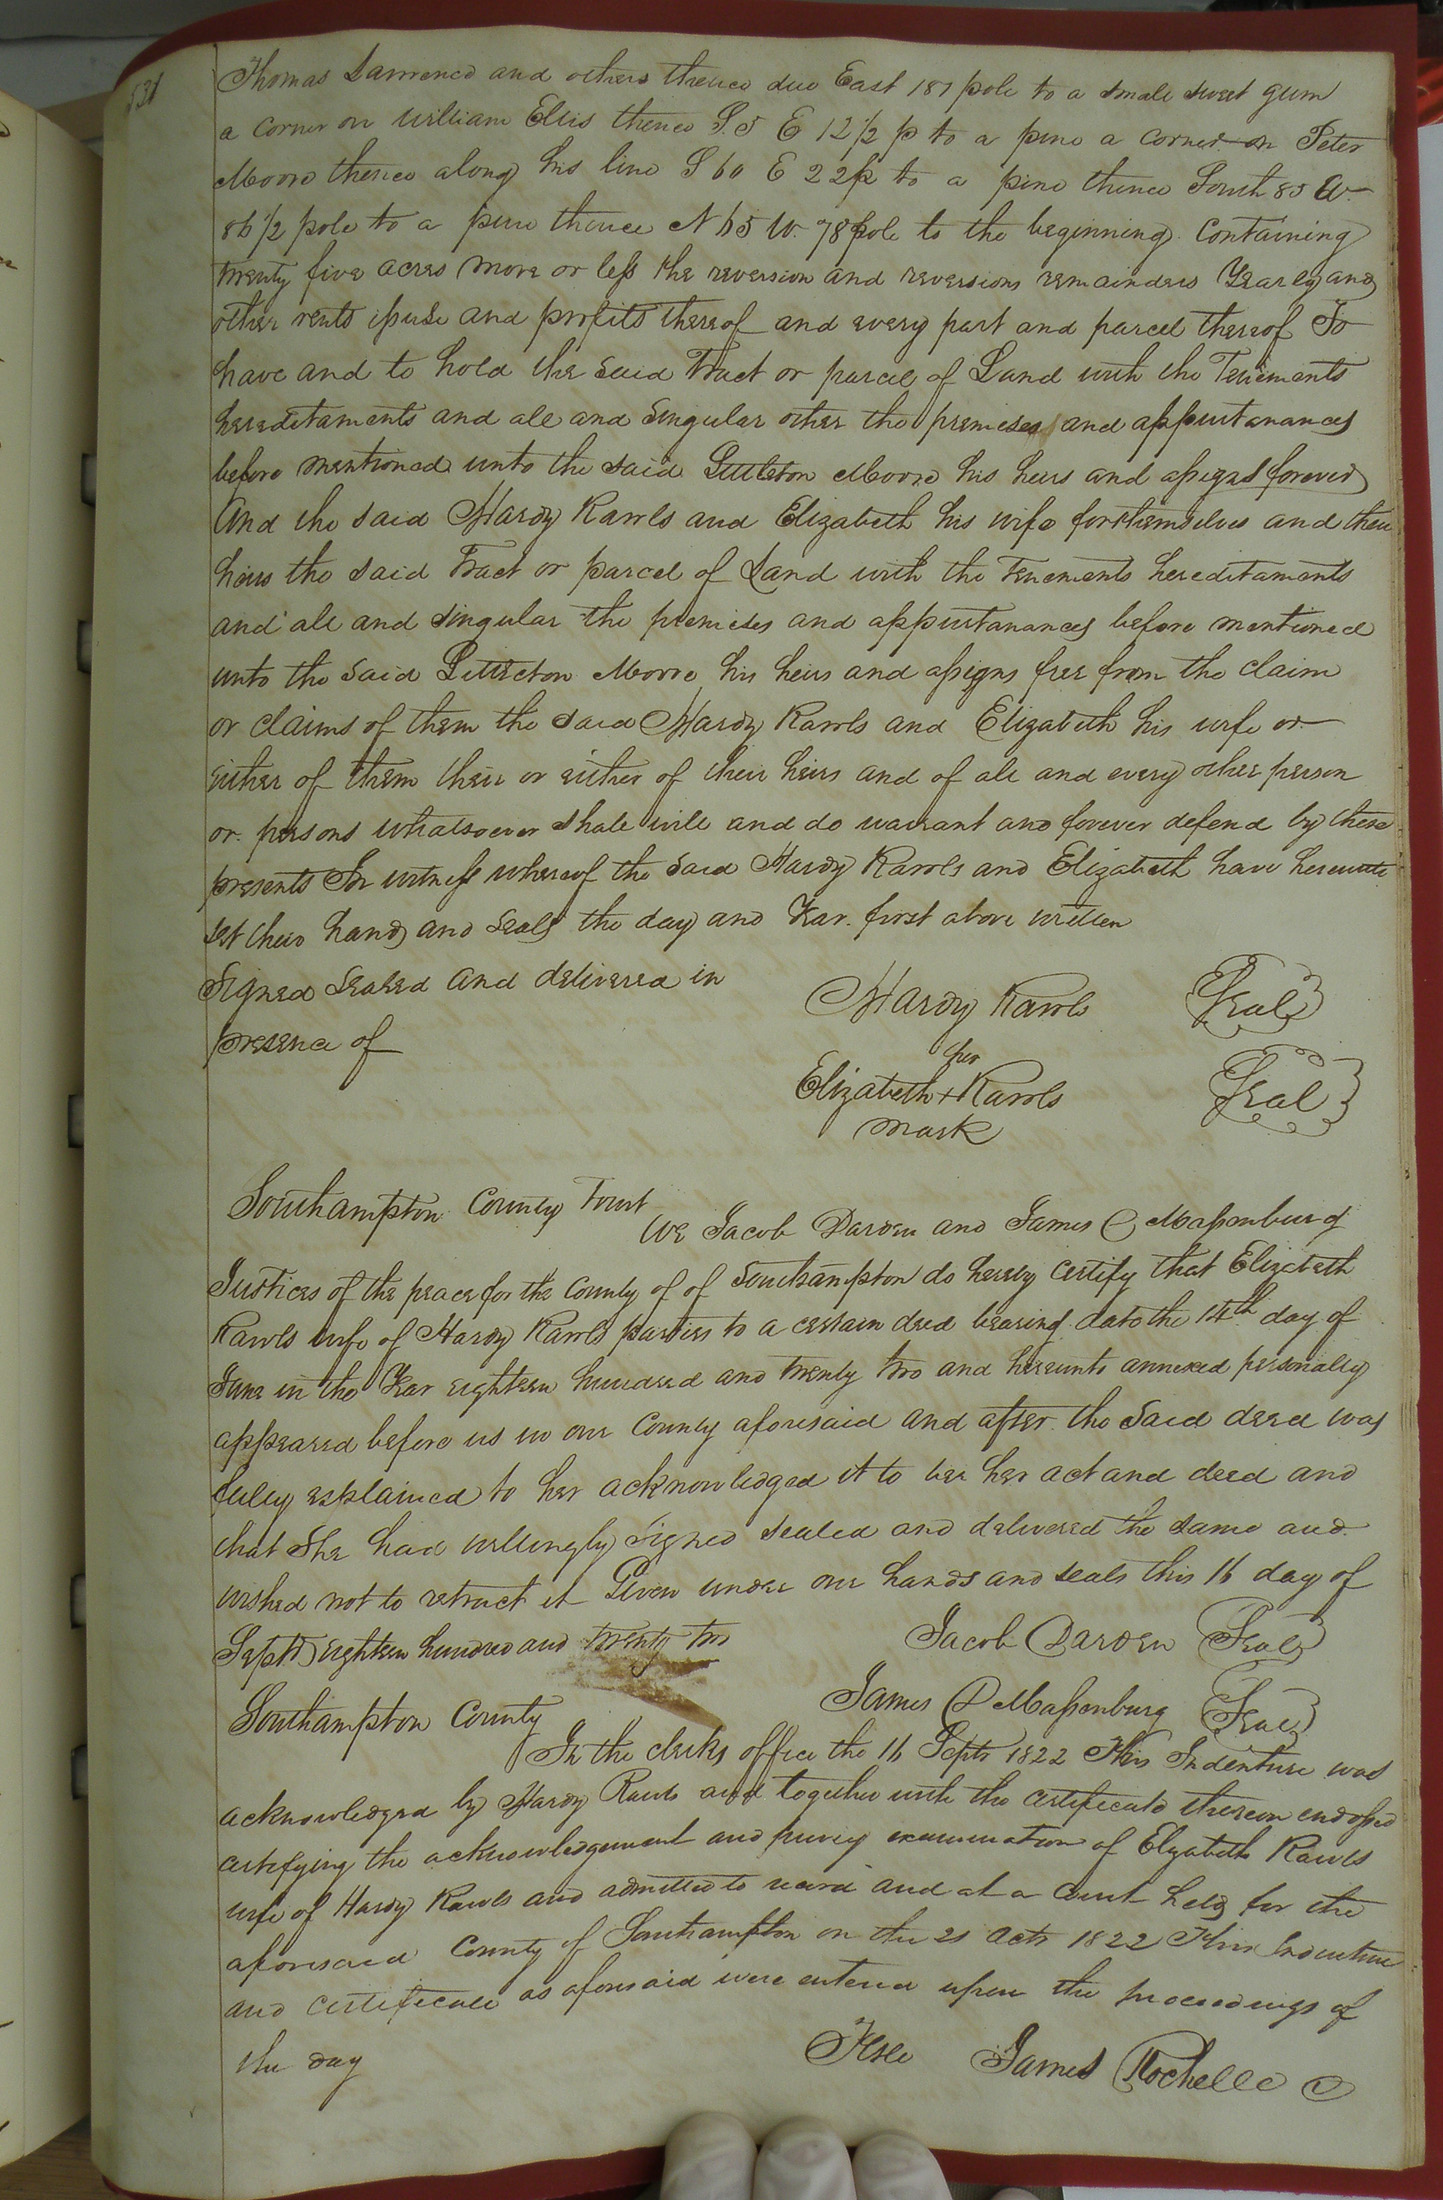 531
Thomas Lawrence and others thence due East 187 pole to a small sweet gum
a corner on William Ellis thence S. 5 E 12½ p to a pine a corner on Peter
Moore thence along his line S 60 E 22p to a pine thence South 85 W.
86½ pole to a pine thence N 65 W. 78 pole to the beginning. Containing
twenty five acres more or less the reversion and reversions remainders Yearly and
other rents issues and profits thereof and every part and parcel thereof To
have and to hold the said Tract or parcel of Land with the Tenements
hereditaments and all and singular other the premises and appurtanances
before mentioned unto the said Littleton Moore his heirs and assigns forever
And the said Hardy Rawls and Elizabeth his wife for themselves and their
heirs the said Tract or parcel of Land with the Tenements hereditaments
and all and singular the premises and appurtanances before mentioned
unto the said Littleton Moore his heirs and assigns free from the claim
or claims of them the said Hardy Rawls and Elizabeth his wife or
either of them their or either of their heirs and of all and every other person
or persons whatsoever shall will and do warrant and forever defend by these
presents In witness whereof the said Hardy Rawls and Elizabeth have hereunto
set their hands and seals the day and Year first above written
Signed Sealed and delivered in
presence of
Hardy Rawls Seal
her
Elizabeth + Rawls Seal
mark
Southampton County Towit
We Jacob Darden and James D Massenburg
Justices of the peace for the County of of Southampton do hereby certify that Elizabeth
Rawls wife of Hardy Rawls parties to a certain deed bearing date the 14th day of
June in the Year eighteen hundred and twenty two and hereunto annexed personally
appeared before us in our County aforesaid and after the said deed was
fully explained to her acknowledged it to be her act and deed and
that She had willingly signed sealed and delivered the same and
wished not to retract it Given under our hands and seals this 16 day of
Septr eighteen hundred and twenty two
Jacob Darden Seal
James D Massenburg Seal
Southampton County
In the clerks office the 16 Septr 1822 This Indenture was
acknowledged by Hardy Rawls and together with the certificate thereon endorsed
certifying the acknowledgement and privy examination of Elizabeth Rawls
wife of Hardy Rawls and admitted to record and at a Court held for the
aforesaid County of Southampton on the 21 Octr 1822 This Indenture
and certificate as aforesaid were entered upon the proceedings of
the day
Teste James Rochelle C